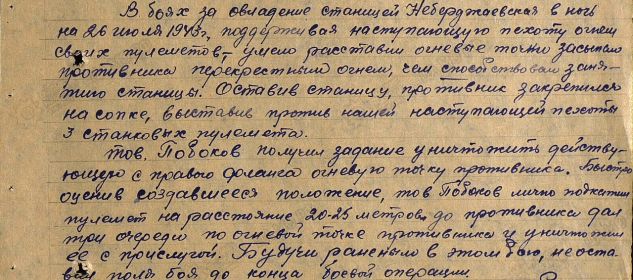 В боях за овладение станицей Неберджаевская в ночь
на 26 июля 1943г, поддерживая наступающую пехоту огнем
своих пулеметов, умело расставил огневые точки засыпал
противника перекрестным огнем, чем способствовал заня-
тию станицы. Оставив станицу, противник закрепился
на сопке, выставив против нашей наступающей пехоты
3 станковых пулемета.
Тов. Побоков получил задание уничтожить действу-
ющую с правого фланга огневую точку противника. Быстро
оценив создавшееся положение, тов Побоков лично подкатил
пулемет на расстояние 20-25 метров до противника дал
три очереди по огневой точке противника и уничтожил
её с прислугой. Будучи раненым в этом бою, не оста-
вил поля боя до конца боевой операции.